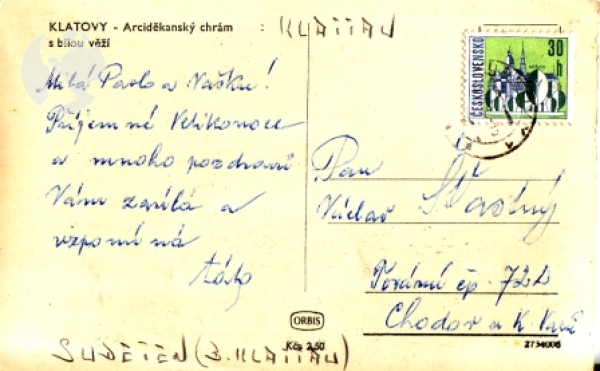 KLATOVY - Arciděkanský chrám
s bílou věží
: KLATTAU
ČESKOSLOVENSKO
30
h
Milá Pavlo a Vašku!
Příjemné Velikonoce
a mnoho pozdravů
Vám zasílá a
vzpomíná
táta
Pan
Václav Šťastný
Tovární čp. 722
Chodov u K. Varů
ORBIS
Kčs 2,60
2734006
SUDETEN (B. KLATTAU)